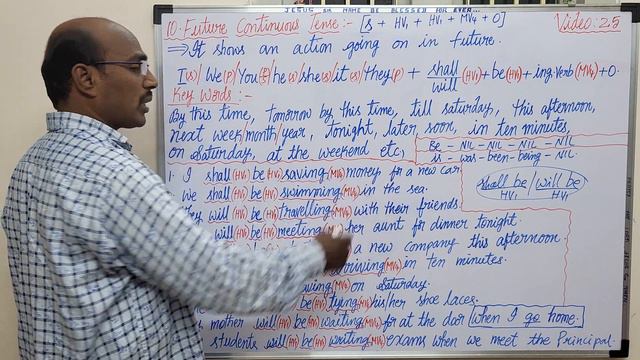 JESUS UR NAME BE BLESSED FOR EVER...
10. Future Continuous Tense:- [S + HV1 + HV1 + MV4 + O]
Video: 25
⇒ It shows an action going on in future.
I(s)/We(p)/You/he(s)/she(s)/it(s)/they(p) + shall/will (HV1) + be(HV1) + ing-Verb(MV4) + O.
Key Words:-
By this time, tomorrow by this time, till saturday, this afternoon,
next week/month/year, tonight, later, soon, in ten minutes,
on Saturday, at the weekend etc,
Be - NIL - NIL - NIL - NIL
is - was - been - being - NIL.
1. I shall(HV1) be(HV1) saving(MV4) money for a new car.
We shall(HV1) be(HV1) swimming(MV4) in the sea.
will(HV1) be(HV1) travelling(MV4) with their friends.
will(HV1) be(HV1) meeting her aunt for dinner tonight.
a new company this afternoon.
(MV4) in ten minutes.
(MV4) on Saturday.
be(HV1) tying(MV4) his/her shoe laces.
mother will(HV1) be(HV1) waiting(MV4) for at the door when I go home.
students will(HV1) be(HV1) writing(MV4) exams when we meet the Principal.
shall be / will be
HV1 HV1